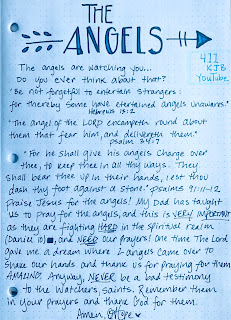 THE
ANGELS
411
KJB
YouTube
The angels are watching you...
Do you ever think about that?
"Be not forgetful to entertain strangers:
for thereby some have etertained angels unawares."
Hebrews 13:2
"The angel of the LORD encampeth round about
them that fear him, and delivereth them."
psalm 34:7
"For he shall give his angels charge over
thee, to keep thee in all thy ways. They
shall bear thee up in their hands, lest thou
dash thy foot against a stone." psalms 91:11-12
Praise Jesus for the angels! My Dad has taught
us to pray for the angels, and this is VERY IMPORTANT
as they are fighting HARD in the spiritual realm
(Daniel 10), and NEED our prayers! One time The Lord
gave me a dream where 2 angels came over to
shake our hands and thank us for praying for them.
AMAZING! Anyway, NEVER be a bad testimony
to the Watchers, saints. Remember them
in your prayers and thank God for them.
Amen. Hope